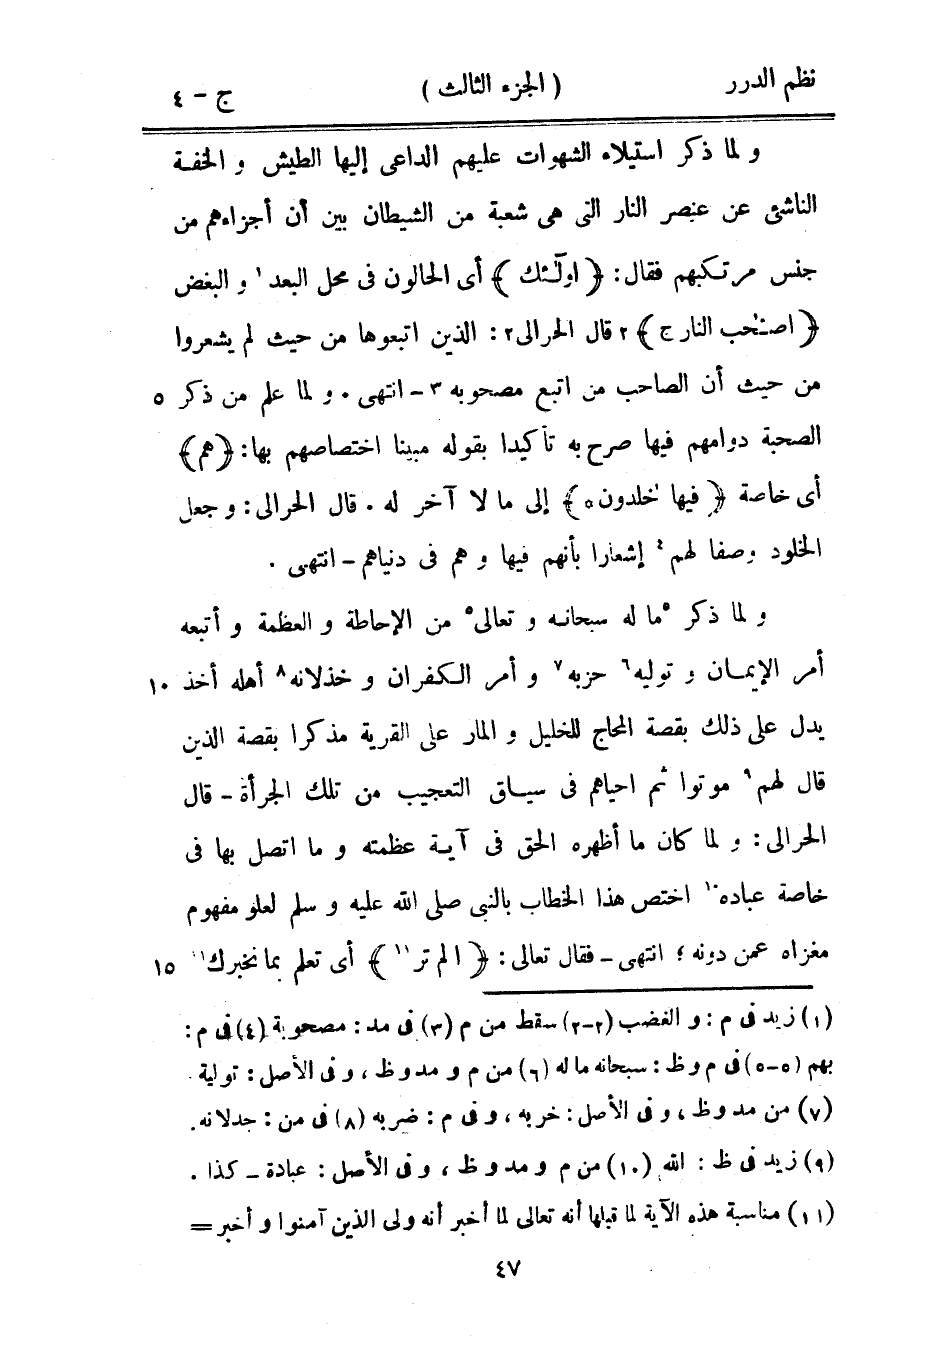 نظم الدرر ( الجزء الثالث ) ج - ٤
و لما ذكر استيلاء الشهوات عليهم الداعى إليها الطيش و الخفة
الناشئ عن عنصر النار التى هى شعبة من الشيطان بين أن أجزاءهم من
جنس مرتكبهم فقال: ﴿ اولٓئك ﴾ أى الحالون فى محل البعد١ و البغض
﴿ اصحٰب النار ج ﴾ ٢ قال الحرالى٢: الذين اتبعوها من حيث لم يشعروا
من حيث أن الصاحب من اتبع مصحوبه ٣ - انتهى . و لما علم من ذكر ٥
الصحبة دوامهم فيها صرح به تأكيدا بقوله مبينا اختصاصهم بها: ﴿ هم ﴾
أى خاصة ﴿ فيها خٰلدون ه ﴾ إلى ما لا آخر له . قال الحرالى: و جعل
الخلود وصفا لهم٤ إشعارا بأنهم فيها و هم فى دنياهم - انتهى .
و لما ذكر ٥ما له سبحانه و تعالى٥ من الإحاطة و العظمة و أتبعه
أمر الإيمان و توليه٦ حزبه٧ و أمر الكفران و خذلانه٨ أهله أخذ ١٠
يدل على ذلك بقصة المحاج للخليل و المار على القرية مذكرا بقصة الذين
قال لهم٩ موتوا ثم احياهم فى سياق التعجيب من تلك الجرأة - قال
الحرالى: و لما كان ما أظهره الحق فى آية عظمته و ما اتصل بها فى
خاصة عباده١٠ اختص هذا الخطاب بالنبى صلى الله عليه و سلم لعلو مفهوم
مغزاه عمن دونه ؛ انتهى - فقال تعالى: ﴿ الم تر١١ ﴾ أى تعلم بما نخبرك١١ ١٥
(١) زيد فى م : و الغضب (٢-٢) سقط من م (٣) فى مد : مصحوبة (٤) فى م :
بهم (٥-٥) فى م و ظ : سبحانه ما له (٦) من م و مد و ظ ، و فى الأصل : تولية .
(٧) من مد و ظ ، و فى الأصل : خربه ، و فى م : ضربه (٨) فى من : جدلانه .
(٩) زيد فى ظ : الله (١٠) من م و مد و ظ ، و فى الأصل : عبادة - كذا .
(١١) مناسبة هذه الآية لما قبلها أنه تعالى لما أخبر أنه ولى الذين آمنوا و أخبر =
٤٧